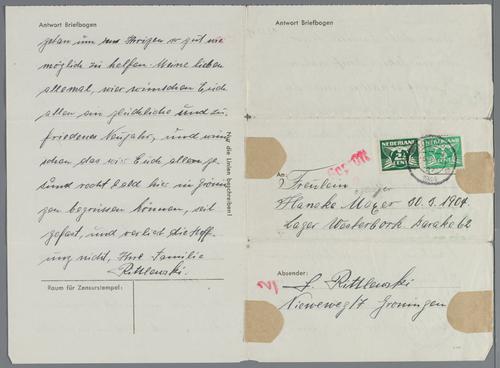 Antwort Briefbogen
getan um das Ihrigen so gut wie
möglich zu helfen. Meine lieben
allemal, wier wünschen Euch
allen ein glückliche und zu-
friedenes Neujahr, und wün-
schen das wir Euch allen ge-
sund recht bald hier in Gronin-
gen begrüssen können, seit
gefast, und verliest die Hoff-
nung nicht. Ihre Familie
Ruttlewski.
Raum für Zensurstempel:
Nur die Linien beschreiben!
Antwort Briefbogen
NEDERLAND
NEDERLAND
An:
Fräulein
Haneke Mayer 10.3.1904.
Lager Westerbork Barake 62
Absender:
S. Ruttlewski
Nieuweweg 17 Groningen